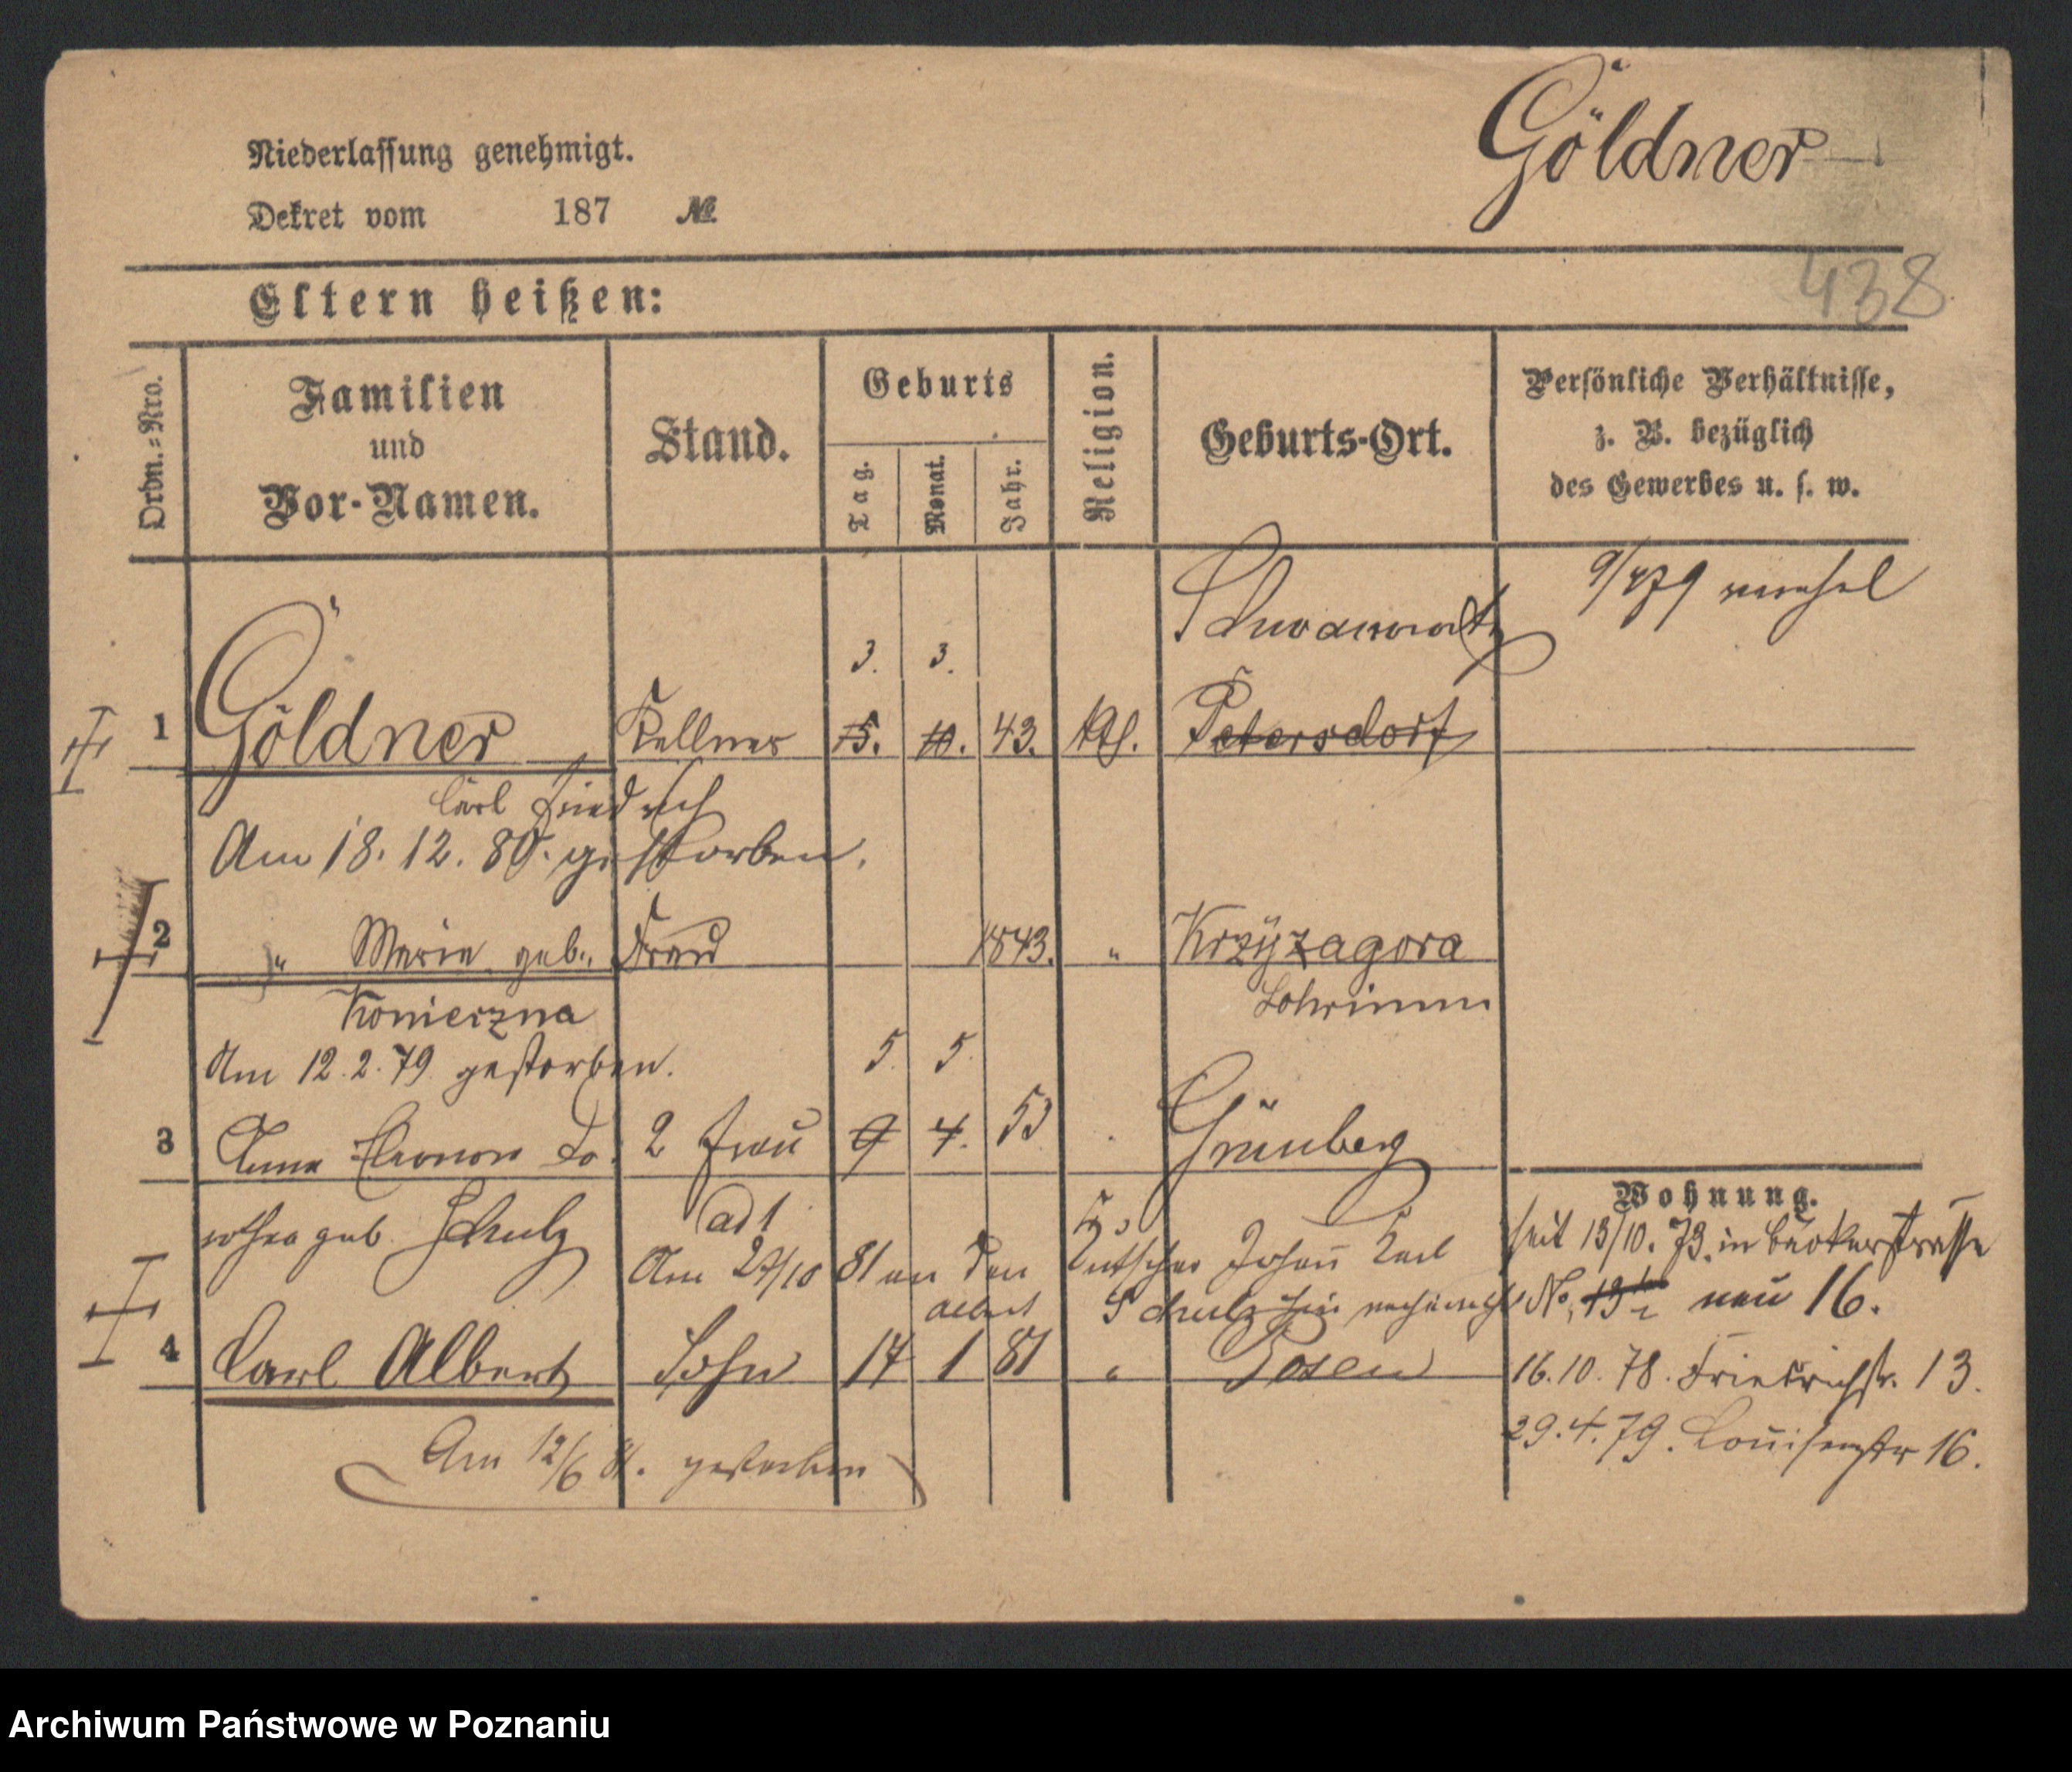 Göldner
Niederlassung genehmigt.
Dekret vom 187 №
438
Eltern heißen:
Ordn.-Nro.
Familien
und
Vor-Namen.
Stand.
Geburts
Tag.
Monat.
Jahr.
Religion.
Geburts-Ort.
Persönliche Verhältnisse,
z. B. bezüglich
des Gewerbes u. s. w.
9/4 79
3. 3.
1 Göldner Kellner 15. 10. 43. Petersdorf
Carl Friedrich
Am 18. 12. 80. gestorben.
2 " Marie geb. Frau 1843. " Krzyzagora
Konierzna
Am 12. 2. 79 gestorben. 5. 5.
3 Anna Eleonore Do 2 Frau 9 4. 53 Grünberg
Wohnung.
rothea geb. Schulz ad 1 seit 13/10. 73. in Bäckerstrasse
Am 27/10 81 an den Kutscher Johann Karl
Albert Schulz No. 13 neu 16.
4 Carl Albert Sohn 17 1 81 " Posen 16. 10. 78. Friedrichstr. 13.
29. 4. 79. Louisenstr 16.
Am 12/6 81. gestorben
Archiwum Państwowe w Poznaniu